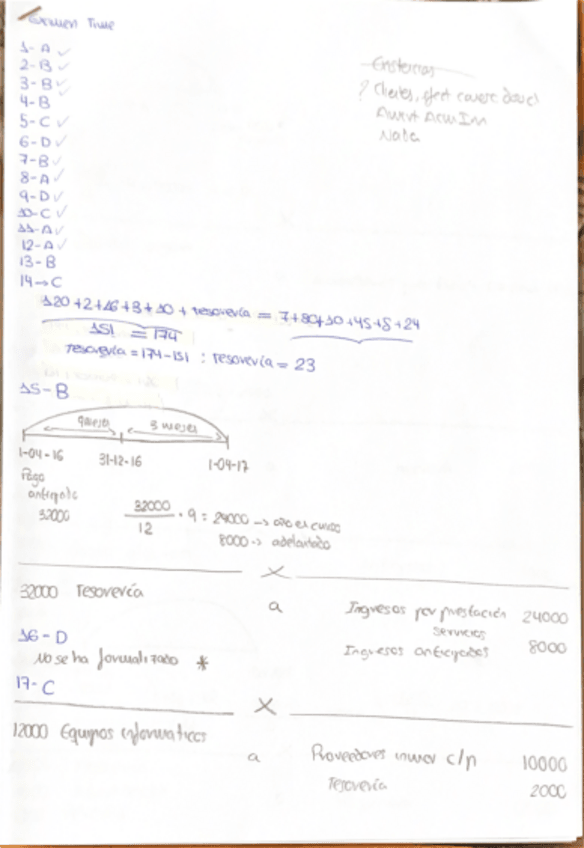 Examen Time
1- A ✓
2- B ✓
3- B ✓
4- B
5- C ✓
6- D ✓
7- B ✓
8- A ✓
9- D ✓
10- C ✓
11- A ✓
12- A ✓
13- B
14 → C
Existencias
? Clientes, efect
Amort Acum Inm
Nada
120 + 2 + 16 + 3 + 10 + tesorería = 7 + 80 + 10 + 45 + 8 + 24
151 = 174
tesorería = 174 - 151 : tesorería = 23
15 - B
9 meses 3 meses
1-04-16 31-12-16 1-04-17
Pago
anticipado
32000
32000/12 · 9 = 24000 → año en curso
8000 → adelantado
32000 Tesorería
a Ingresos por prestación servicios 24000
Ingresos anticipados 8000
16 - D
No se ha formalizado *
17- C
12000 Equipos informaticos
a Proveedores inmov c/p 10000
Tesorería 2000